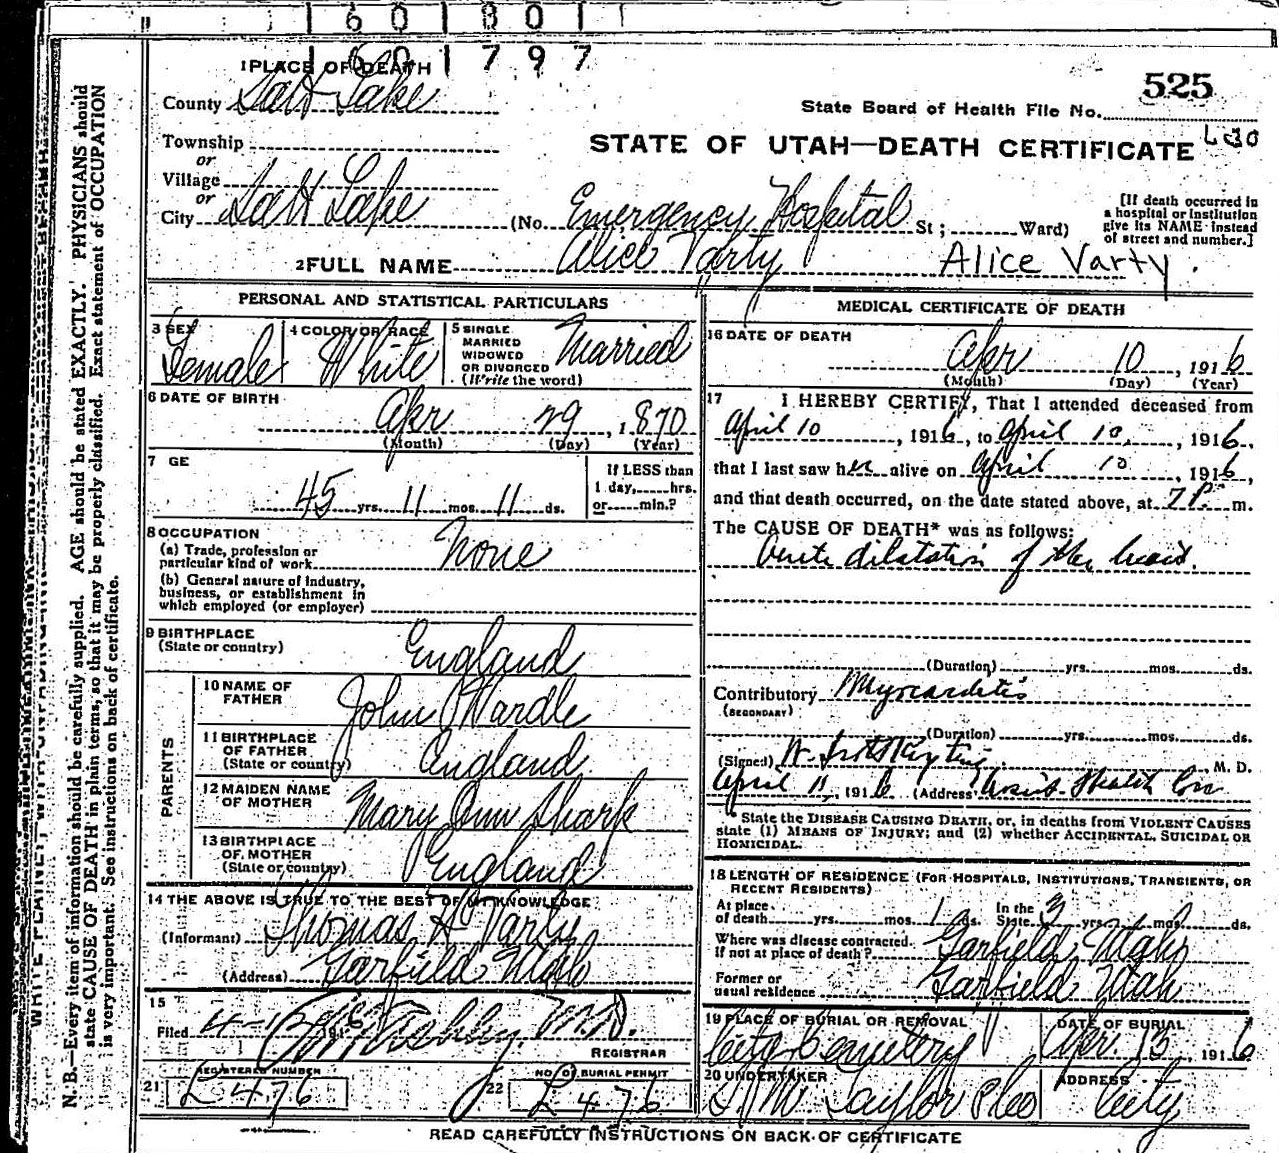 1 6 0 1 8 0 1
1 6 0 1 7 9 7
1 PLACE OF DEATH
County Salt Lake
Township
or
Village
or
City Salt Lake (No. Emergency Hospital St; Ward)
525
State Board of Health File No.
STATE OF UTAH—DEATH CERTIFICATE
[If death occurred in
a hospital or institution
give its NAME instead
of street and number.]
2 FULL NAME Alice Varty Alice Varty.
PERSONAL AND STATISTICAL PARTICULARS
3 SEX Female
4 COLOR OR RACE White
5 SINGLE
MARRIED
WIDOWED
OR DIVORCED
(Write the word) Married
6 DATE OF BIRTH
Apr 29, 1870
(Month) (Day) (Year)
7 GE
45 yrs. 11 mos. 11 ds.
If LESS than
1 day, hrs.
or min.?
8 OCCUPATION
(a) Trade, profession or
particular kind of work None
(b) General nature of industry,
business, or establishment in
which employed (or employer)
9 BIRTHPLACE
(State or country) England
PARENTS
10 NAME OF
FATHER John Wardle
11 BIRTHPLACE
OF FATHER
(State or country) England
12 MAIDEN NAME
OF MOTHER Mary Ann Sharp
13 BIRTHPLACE
OF MOTHER
(State or country) England
14 THE ABOVE IS TRUE TO THE BEST OF MY KNOWLEDGE
(Informant) Thomas H Varty
(Address) Garfield Utah
15
Filed 191 M.D.
REGISTRAR
21 REGISTERED NUMBER
L 476
22 NO. OF BURIAL PERMIT
L 476
MEDICAL CERTIFICATE OF DEATH
16 DATE OF DEATH
Apr 10, 1916
(Month) (Day) (Year)
17 I HEREBY CERTIFY, That I attended deceased from
April 10, 1916, to April 10, 1916.
that I last saw her alive on April 10, 1916,
and that death occurred, on the date stated above, at 7 P. m.
The CAUSE OF DEATH* was as follows:
Acute dilatation of the heart.
(Duration) yrs. mos. ds.
Contributory Myocarditis
(SECONDARY)
(Duration) yrs. mos. ds.
(Signed) M. D.
April 11, 1916 (Address)
* State the DISEASE CAUSING DEATH, or, in deaths from VIOLENT CAUSES
state (1) MEANS OF INJURY; and (2) whether ACCIDENTAL, SUICIDAL OR
HOMICIDAL.
18 LENGTH OF RESIDENCE (FOR HOSPITALS, INSTITUTIONS, TRANSIENTS, OR
RECENT RESIDENTS)
At place
of death yrs. mos. 1 ds. In the
State 3 yrs. mos. ds.
Where was disease contracted.
if not at place of death? Garfield, Utah
Former or
usual residence Garfield Utah
19 PLACE OF BURIAL OR REMOVAL
City Cemetery
DATE OF BURIAL
Apr. 13, 1916
20 UNDERTAKER
Taylor
ADDRESS
City
READ CAREFULLY INSTRUCTIONS ON BACK OF CERTIFICATE
N. B.—Every item of information should be carefully supplied. AGE should be stated EXACTLY. PHYSICIANS should
state CAUSE OF DEATH in plain terms, so that it may be properly classified. Exact statement of OCCUPATION
is very important. See instructions on back of certificate.